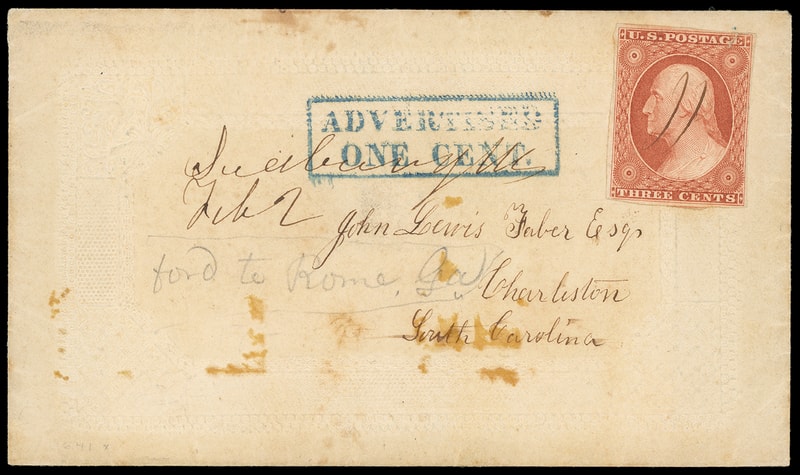 U.S. POSTAGE
THREE CENTS
ADVERTISED
ONE CENT.
Feb 2
John Lewis Faber Esqr
ford to Rome, Ga
Charleston
South Carolina